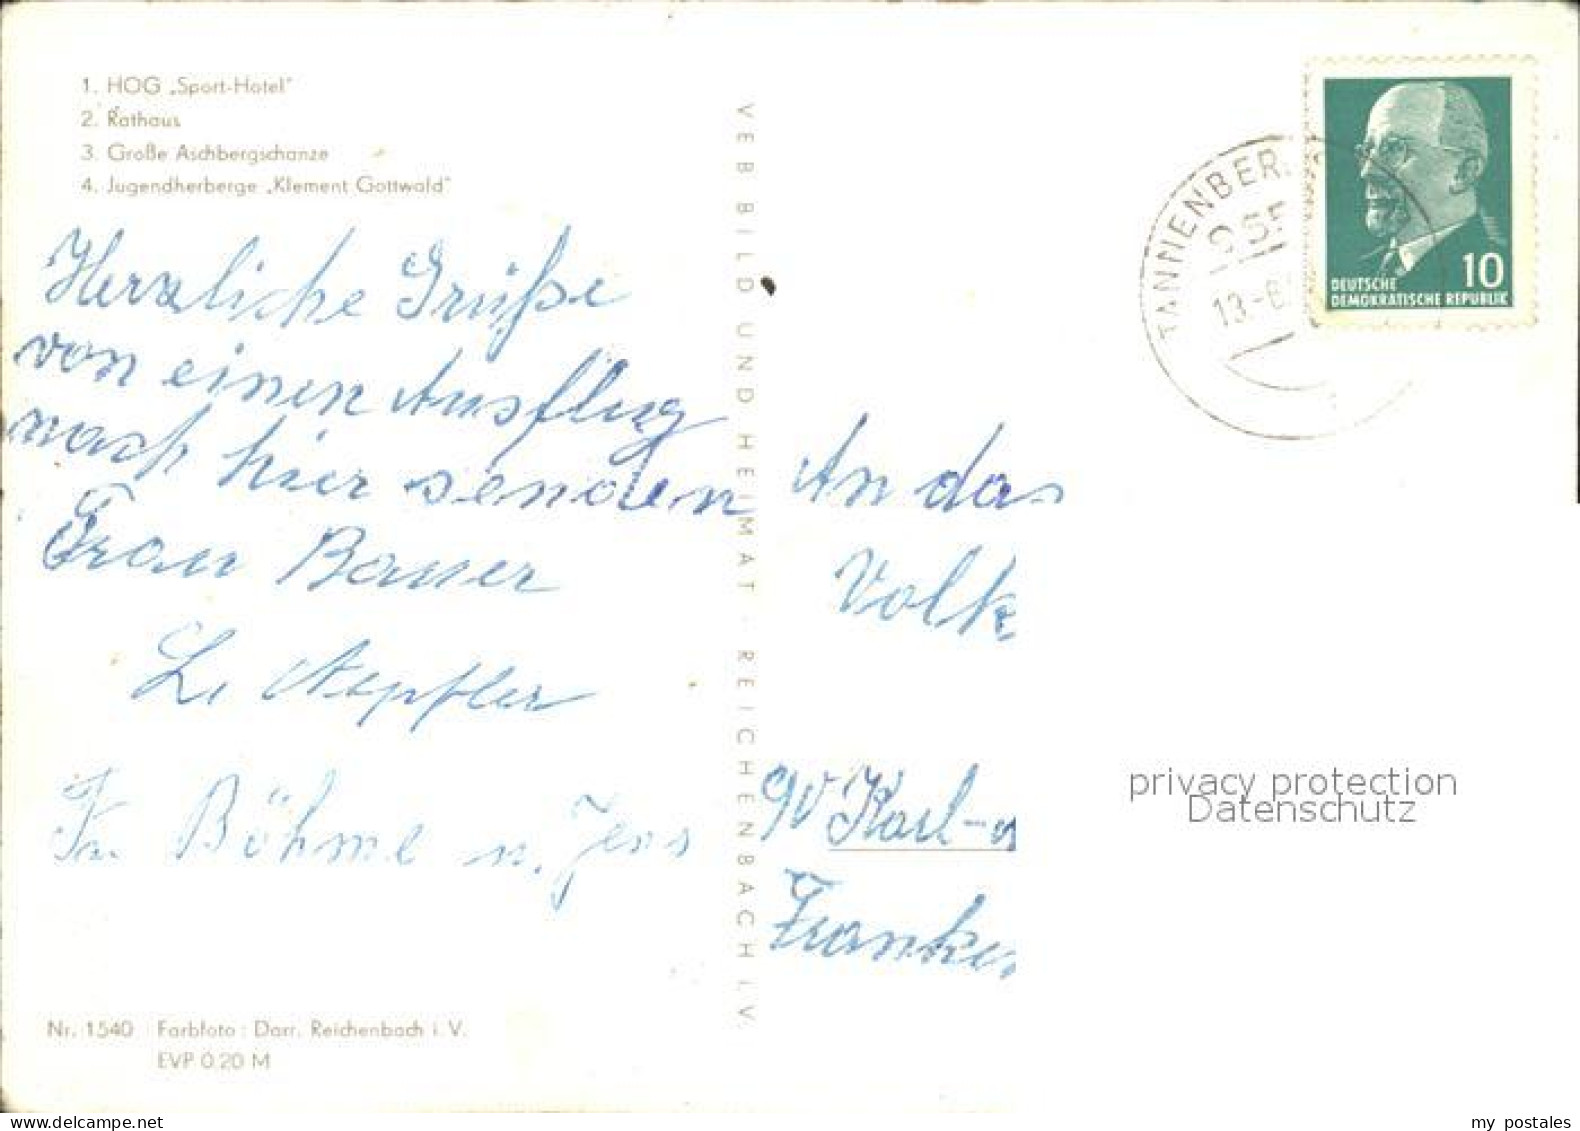 1. HOG „Sport-Hotel"
2. Rathaus
3. Große Aschbergschanze
4. Jugendherberge „Klement Gottwald"
Herzliche Grüße
von einen Ausflug
nach hier senden
Frau Bauer
Aepfler
Fr. Böhme u. Jens
Nr. 1540 Farbfoto: Darr. Reichenbach i. V.
EVP 0.20 M
VEB BILD UND HEIMAT · REICHENBACH I.V.
TANNENBER
13.-6
DEUTSCHE
DEMOKRATISCHE REPUBLIK
10
An das
Volk
90 Karl-
Franken
privacy protection
Datenschutz
my postales